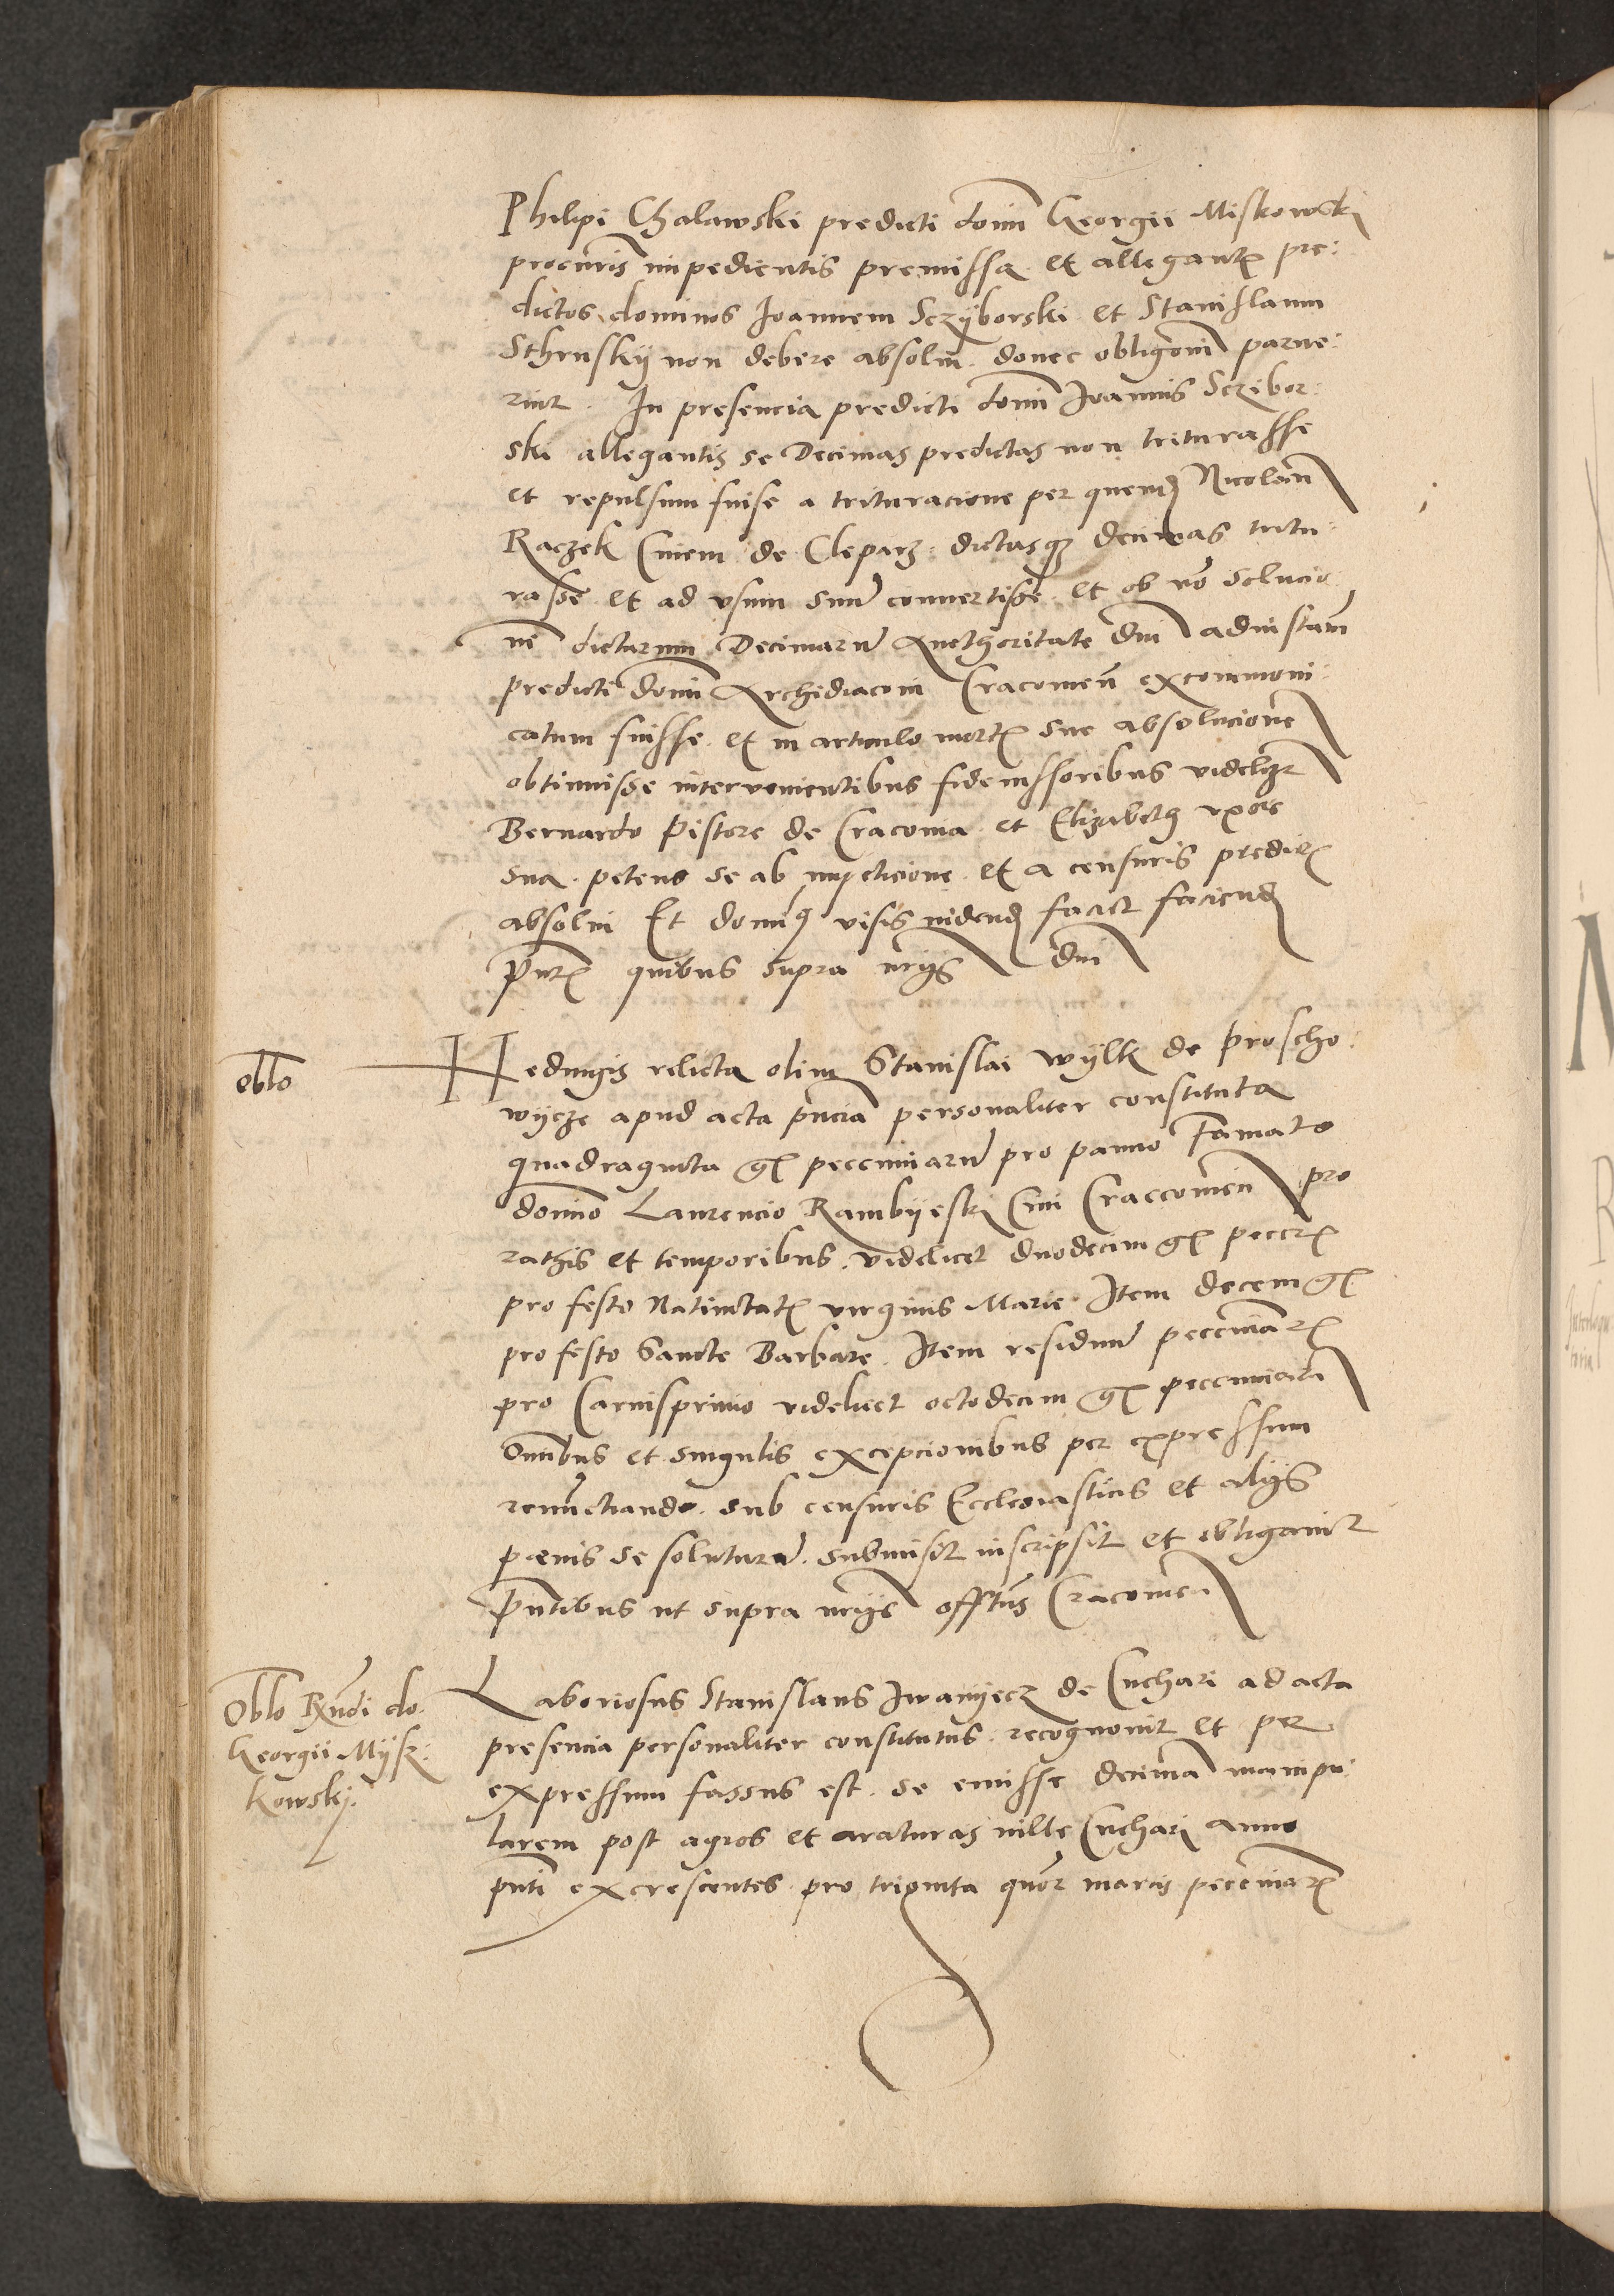 Philipi Chalawski predicti domi Georgii Miskowski
procuris impedientis premissa et allegant pre:
dictos dominos Joannem Sczyborski et Stanislaum
Sthrusky non debere absolui donec obligoni parue:
rint. In presencia predicti domi Joannis Sczibor:
ski allegantis se Decimas predictas non triturasse
et repulsum fuise a trituracione per quend Nicolau
Raczek Ciuem de Cleparz dictasq decimas tritu:
rasse et ad vsum suu conuertisse et ob no solucio
ne dictarum Decimaru Aucthoritate dni ad instam
predicti domi Archidiaconi Cracouien excommoni:
catum fuisse et in articulo mort sue absolucione
obtinuisse interuenientibus fideiussoribus videlzt
Bernardo Pistore de Cracouia et Elizabeth vxore
sua petens se ab impeticione et a censuris predict
absolui Et domi9 visis uidend faciet faciend
Pnt quibus supra nrijs dni
oblo
Heduigis relicta olim Stanislai Wylk de Proscho
wycze apud acta pncia personaliter constituta
quadraginta g peccuniaru pro panno Famato
domino Laurencio Rambyeski Ciui Craccouien pro
rathis et temporibus videlicet duodecim g pecc
pro festo Natiuitat virginis Marie Item decem g
pro festo Sancte Barbare Item residuu peccuniar
pro Carnispriuio videlicet octodecim g peccuniaru
Omibus et singulis excepcionibus per expressum
renunctiando sub censuris Ecclesiasticis et alijs
poenis se soluturu submisit inscripsit et obligauit
Pntibus ut supra nrijs offtus Cracouien
Oblo Rndi do.
Georgii Mysz:
kowski.
Laboriosus Stanislaus Iwanyecz de Cuchari ad acta
presencia personaliter constitutus recognouit et per
expressum fassus est se emisse decima manipu
larem post agros et araturas uille Cuchari anno
pnti excrescentes pro triginta quor marcis peccuniar